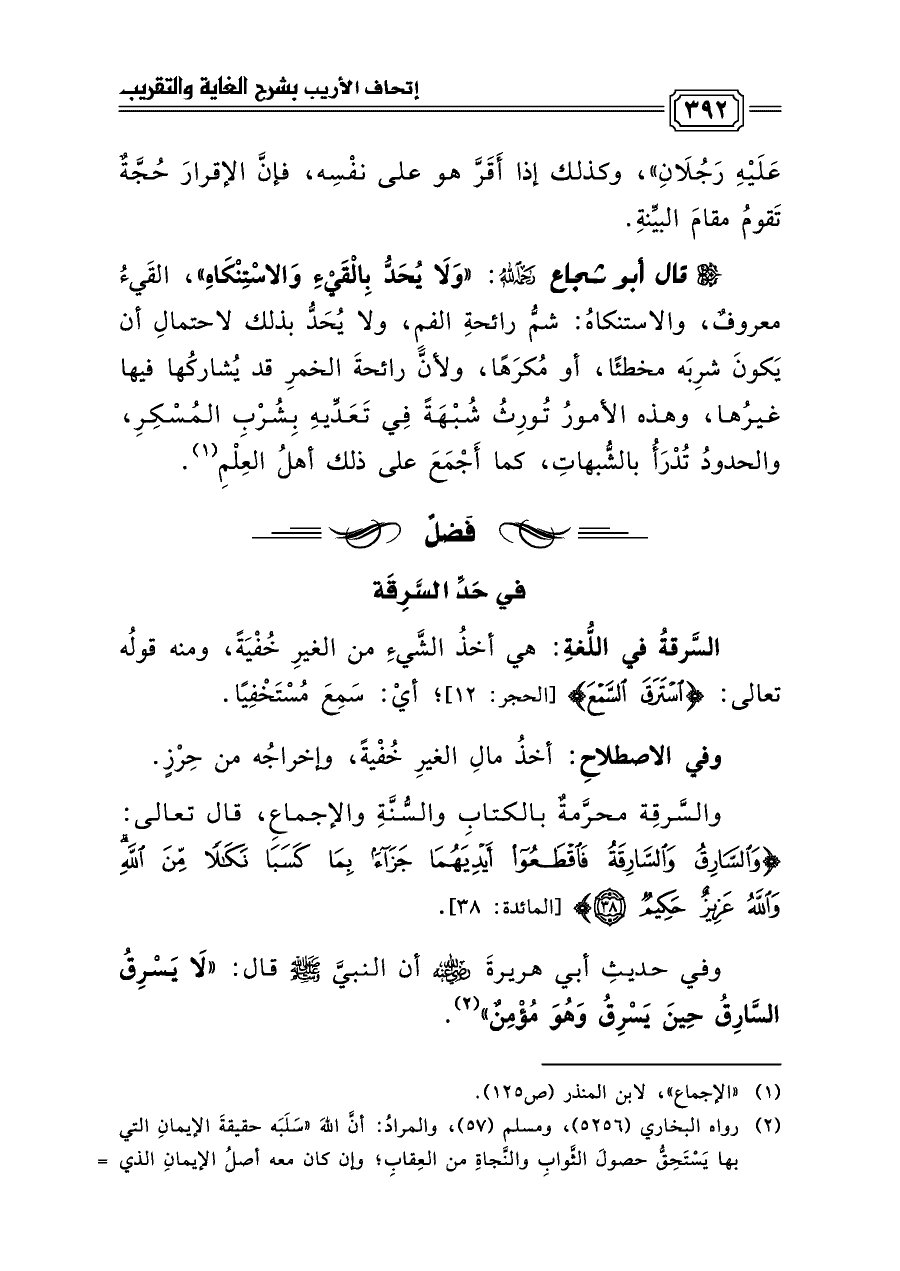 إتحاف الأريب بشرح الغاية والتقريب
٣٩٢
عَلَيْهِ رَجُلَانِ»، وكذلك إذا أَقَرَّ هو على نفْسِه، فإنَّ الإقرارَ حُجَّةٌ
تَقومُ مقامَ البيِّنةِ.
قال أبو شجاع رَحِمَهُ اللَّهُ: «وَلَا يُحَدُّ بِالْقَيْءِ وَالاسْتِنْكَاهِ»، القَيءُ
معروفٌ، والاستنكاهُ: شمُّ رائحةِ الفمِ، ولا يُحَدُّ بذلك لاحتمالِ أن
يَكونَ شرِبَه مخطئًا، أو مُكرَهًا، ولأنَّ رائحةَ الخمرِ قد يُشاركُها فيها
غيرُها، وهذه الأمورُ تُورِثُ شُبْهَةً فِي تَعَدِّيهِ بِشُرْبِ المُسْكِرِ،
والحدودُ تُدْرَأُ بالشُّبهاتِ، كما أَجْمَعَ على ذلك أهلُ العِلْمِ(١).
فَصْلٌ
في حَدِّ السَّرِقَة
السَّرقةُ في اللُّغةِ: هي أخذُ الشَّيءِ من الغيرِ خُفْيَةً، ومنه قولُه
تعالى: ﴿ٱسۡتَرَقَ ٱلسَّمۡعَ﴾ [الحجر: ١٢]؛ أيْ: سَمِعَ مُسْتَخْفِيًا.
وفي الاصطلاحِ: أخذُ مالِ الغيرِ خُفْيةً، وإخراجُه من حِرْزٍ.
والسَّرقِة محرَّمةٌ بالكتابِ والسُّنَّةِ والإجماعِ، قال تعالى:
﴿وَٱلسَّارِقُ وَٱلسَّارِقَةُ فَٱقۡطَعُوٓاْ أَيۡدِيَهُمَا جَزَآءَۢ بِمَا كَسَبَا نَكَٰلٗا مِّنَ ٱللَّهِۗ
وَٱللَّهُ عَزِيزٌ حَكِيمٞ ٣٨﴾ [المائدة: ٣٨].
وفي حديثِ أبي هريرةَ رَضِيَ اللَّهُ عَنْهُ أن النبيَّ ﷺ قال: «لَا يَسْرِقُ
السَّارِقُ حِينَ يَسْرِقُ وَهُوَ مُؤْمِنٌ»(٢).
(١) «الإجماع»، لابن المنذر (ص١٢٥).
(٢) رواه البخاري (٥٢٥٦)، ومسلم (٥٧)، والمرادُ: أنَّ اللهَ «سَلَبَه حقيقةَ الإيمانِ التي
بها يَسْتَحِقُّ حصولَ الثَّوابِ والنَّجاةِ من العِقابِ؛ وإن كان معه أصلُ الإيمانِ الذي =